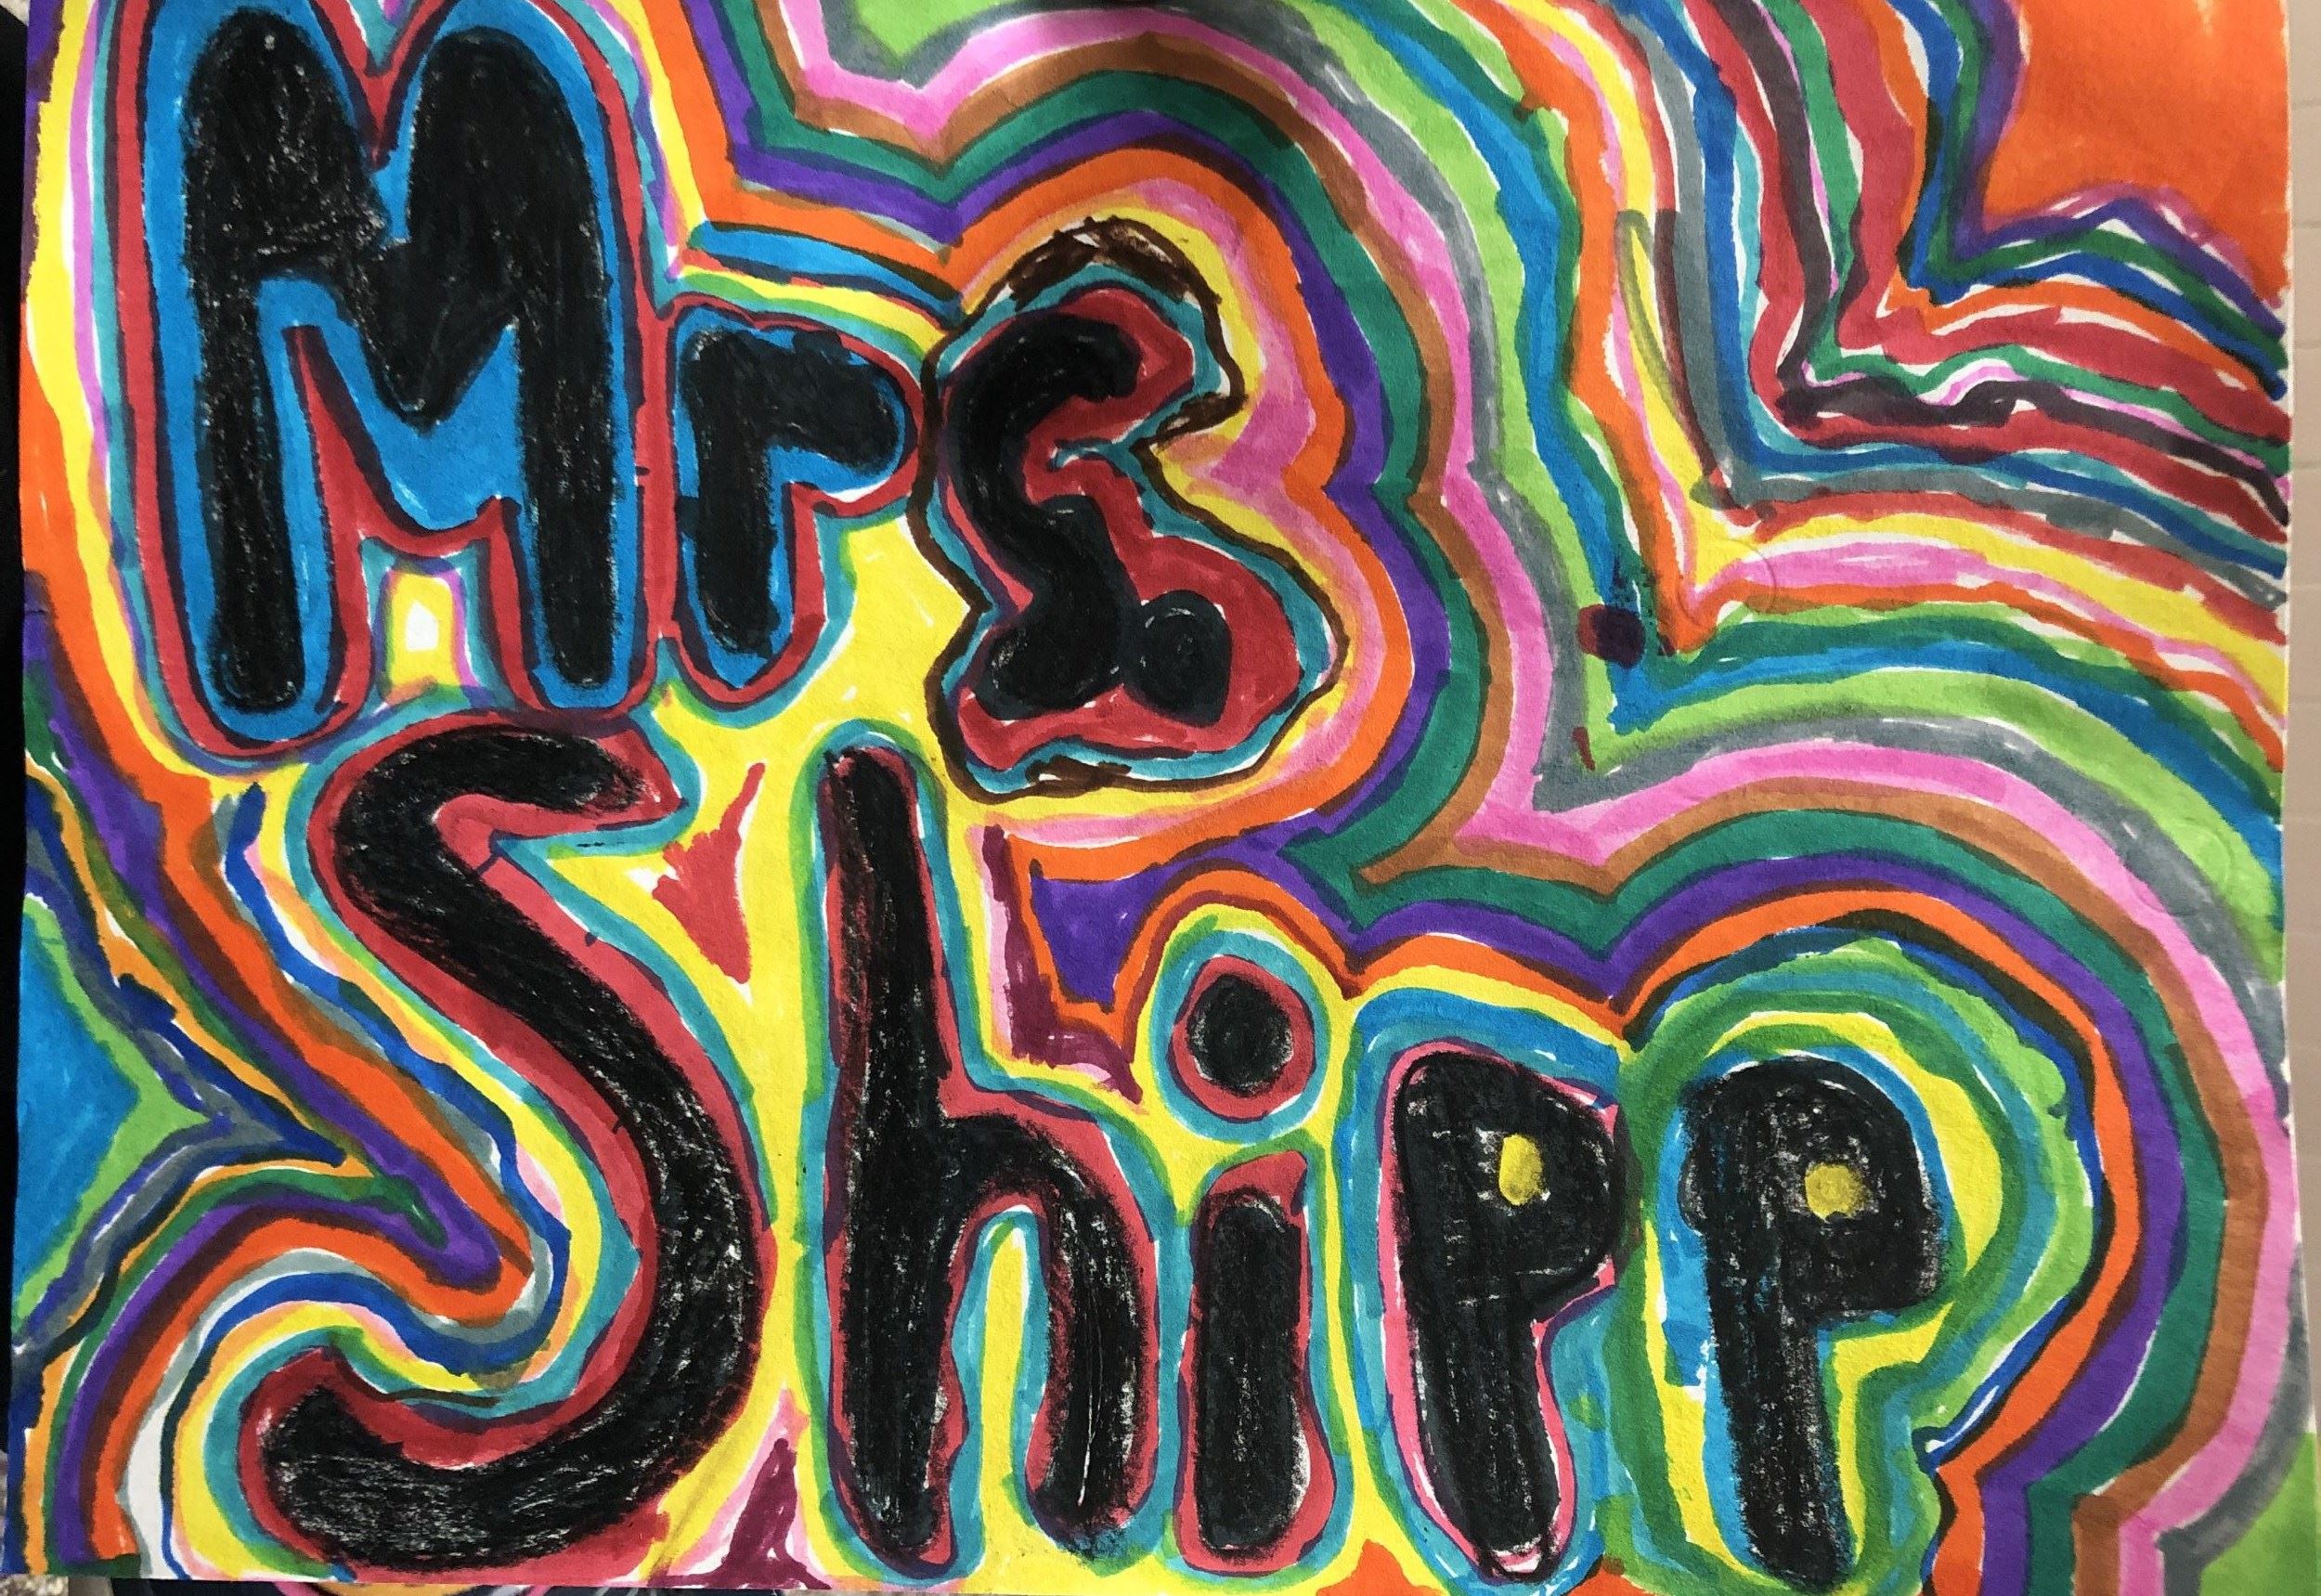 Mrs.
Shipp